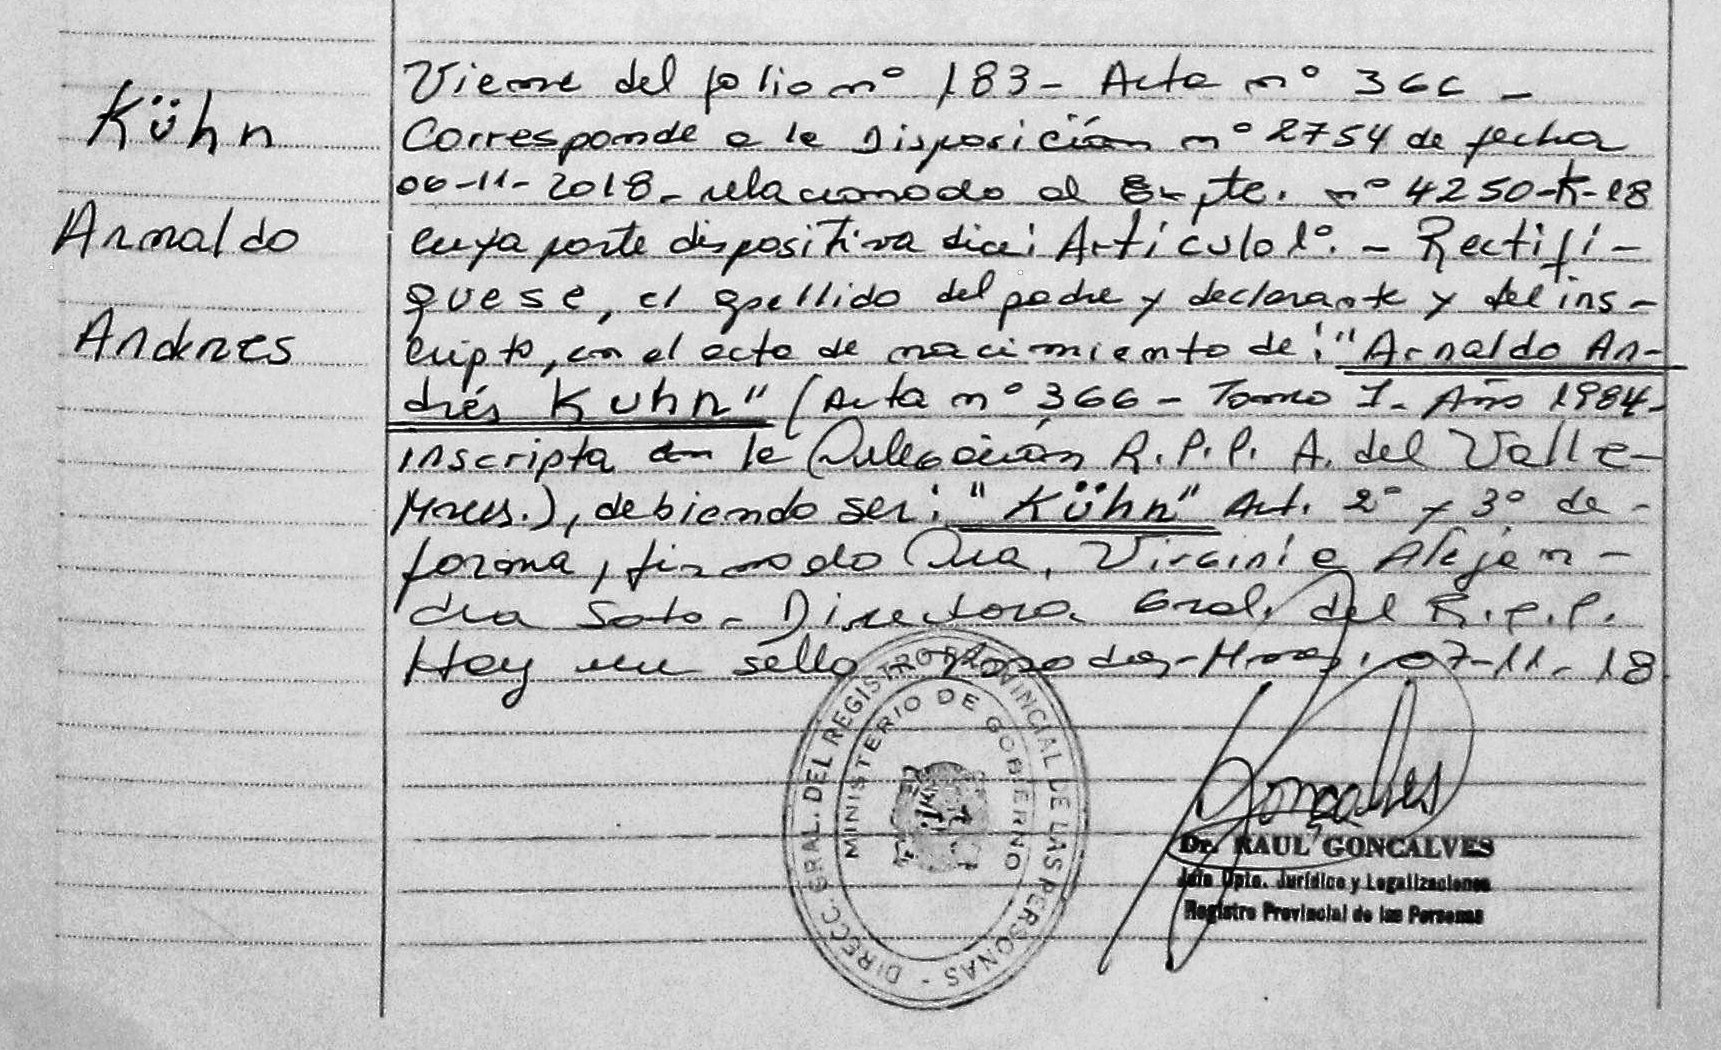 Kühn
Arnaldo
Andres
Viene del folio nº 183 - Acta nº 366 -
Corresponde a la Disposición nº 2754 de fecha
06-11-2018 - relacionado al Expte. nº 4250-K-18
cuya parte dispositiva dice: Artículo 1º. - Rectifí-
quese, el apellido del padre y declarante y del ins-
cripto, en el acta de nacimiento de: "Arnaldo An-
drés Kuhn" (Acta nº 366 - Tomo I - Año 1984 -
inscripta en la Delegación R.P.P. A. del Valle -
Mnes.), debiendo ser: "Kühn" Art. 2º y 3º de -
forma, firmado Dra. Virginia Alejan-
dra Soto - Directora Gral. del R.P.P.
Hay un sello Posadas - Mnes, 07-11-18
DIRECC. GRAL. DEL REGISTRO PROVINCIAL DE LAS PERSONAS -
MINISTERIO DE GOBIERNO
Gonçalves
Dr. RAUL GONCALVES
Jefe Dpto. Jurídico y Legalizaciones
Registro Provincial de las Personas